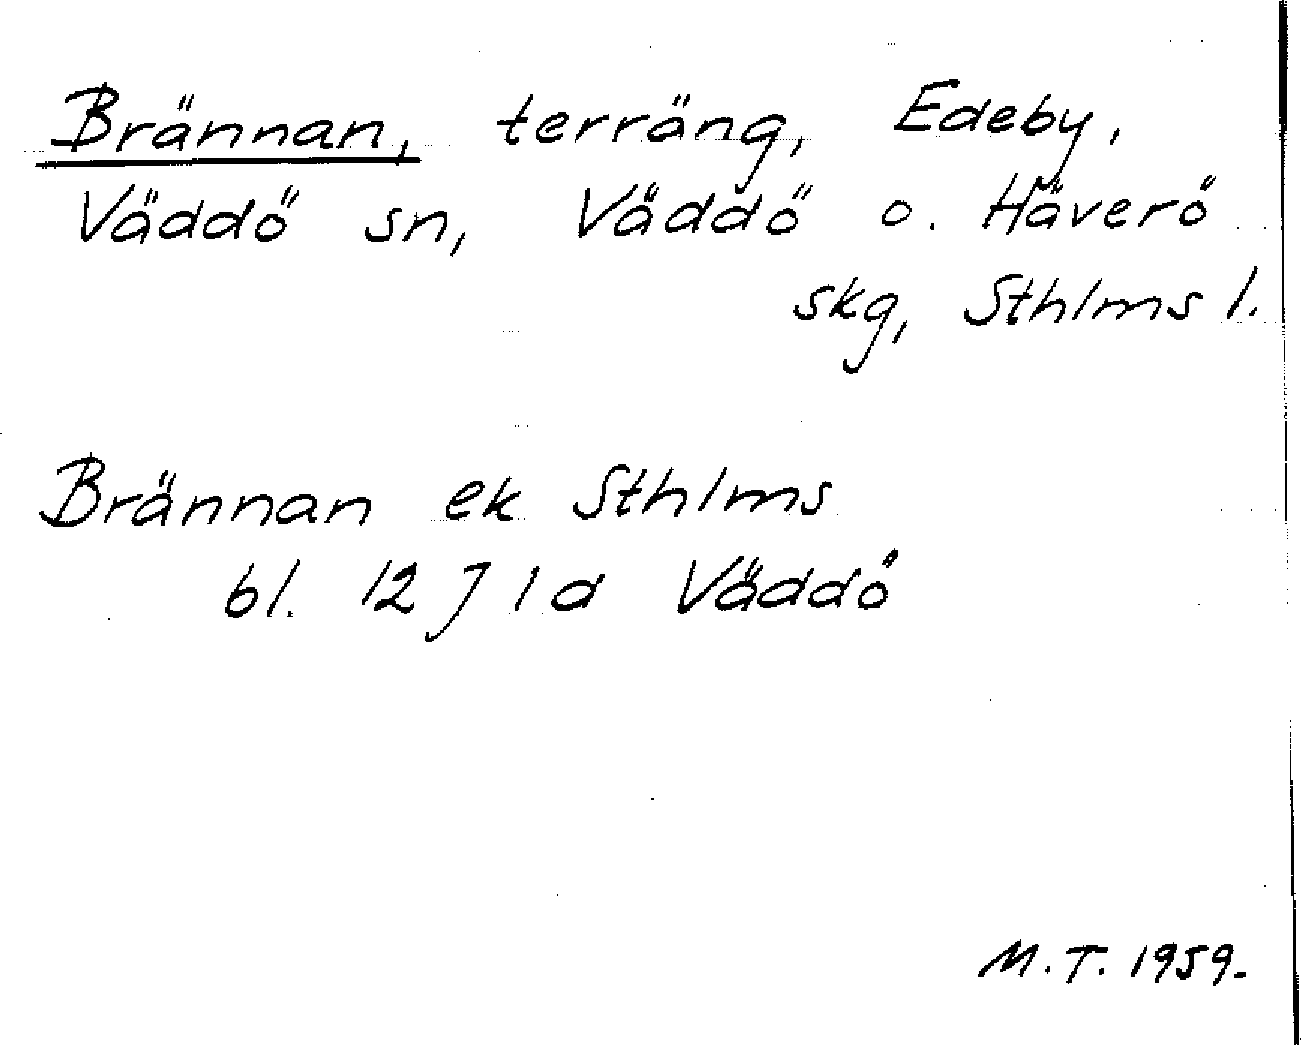 Brännan, terräng, Edeby,
Väddö sn, Väddö o. Häverö
skg, Sthlms l.
Brännan ek Sthlms
bl. 12 J 1 d Väddö
M.T. 1959.